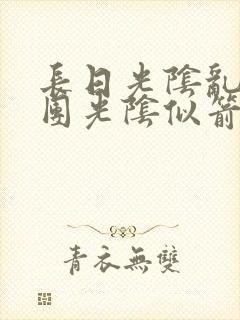 長日光陰亂
團光陰似箭
青衣無雙